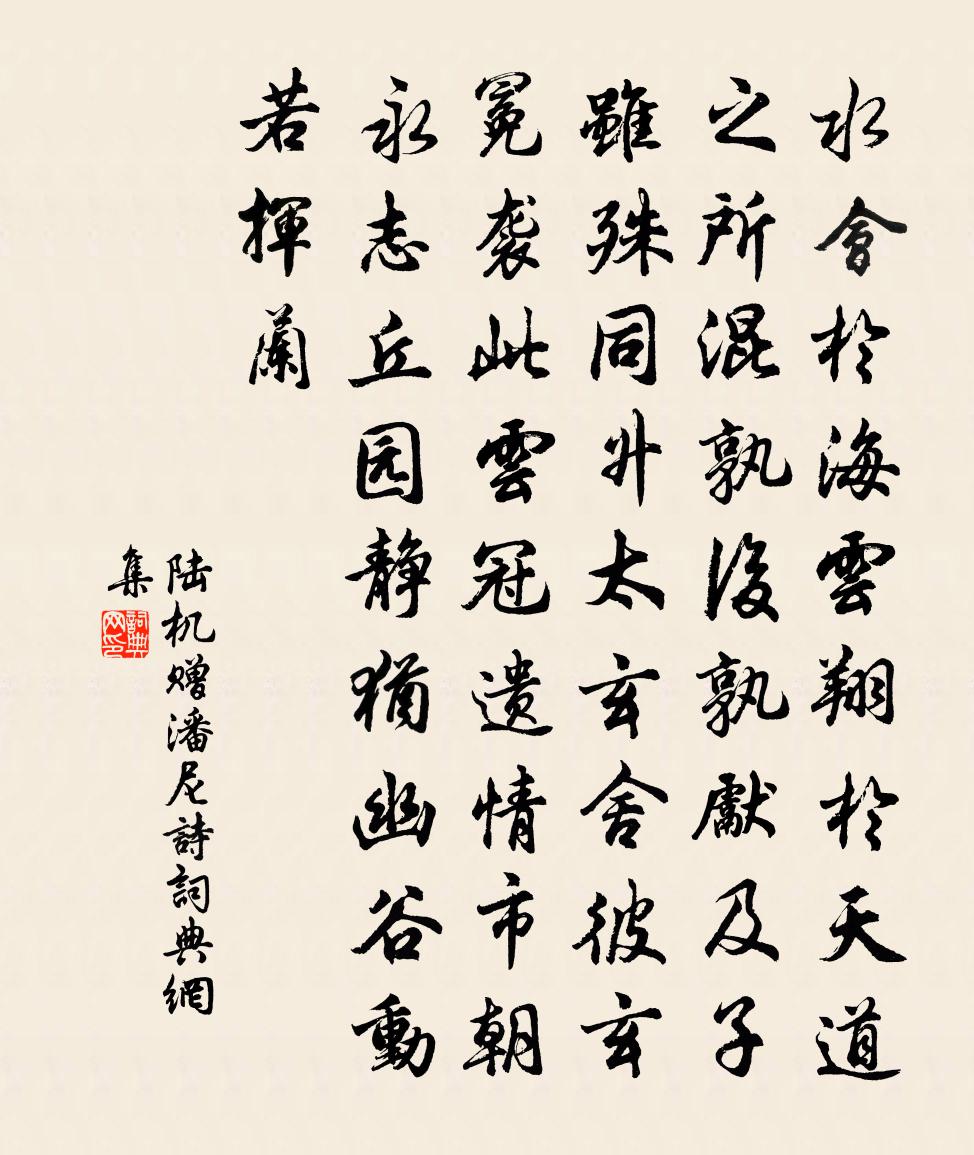 水會於海雲翔於天道
之所混孰後孰獻及子
雖殊同升太玄舍彼玄
冕襲此雲冠遗情市朝
永志丘园静猶幽谷動
若揮蘭
陆机赠潘尼詩詞典網
集
詞典网印